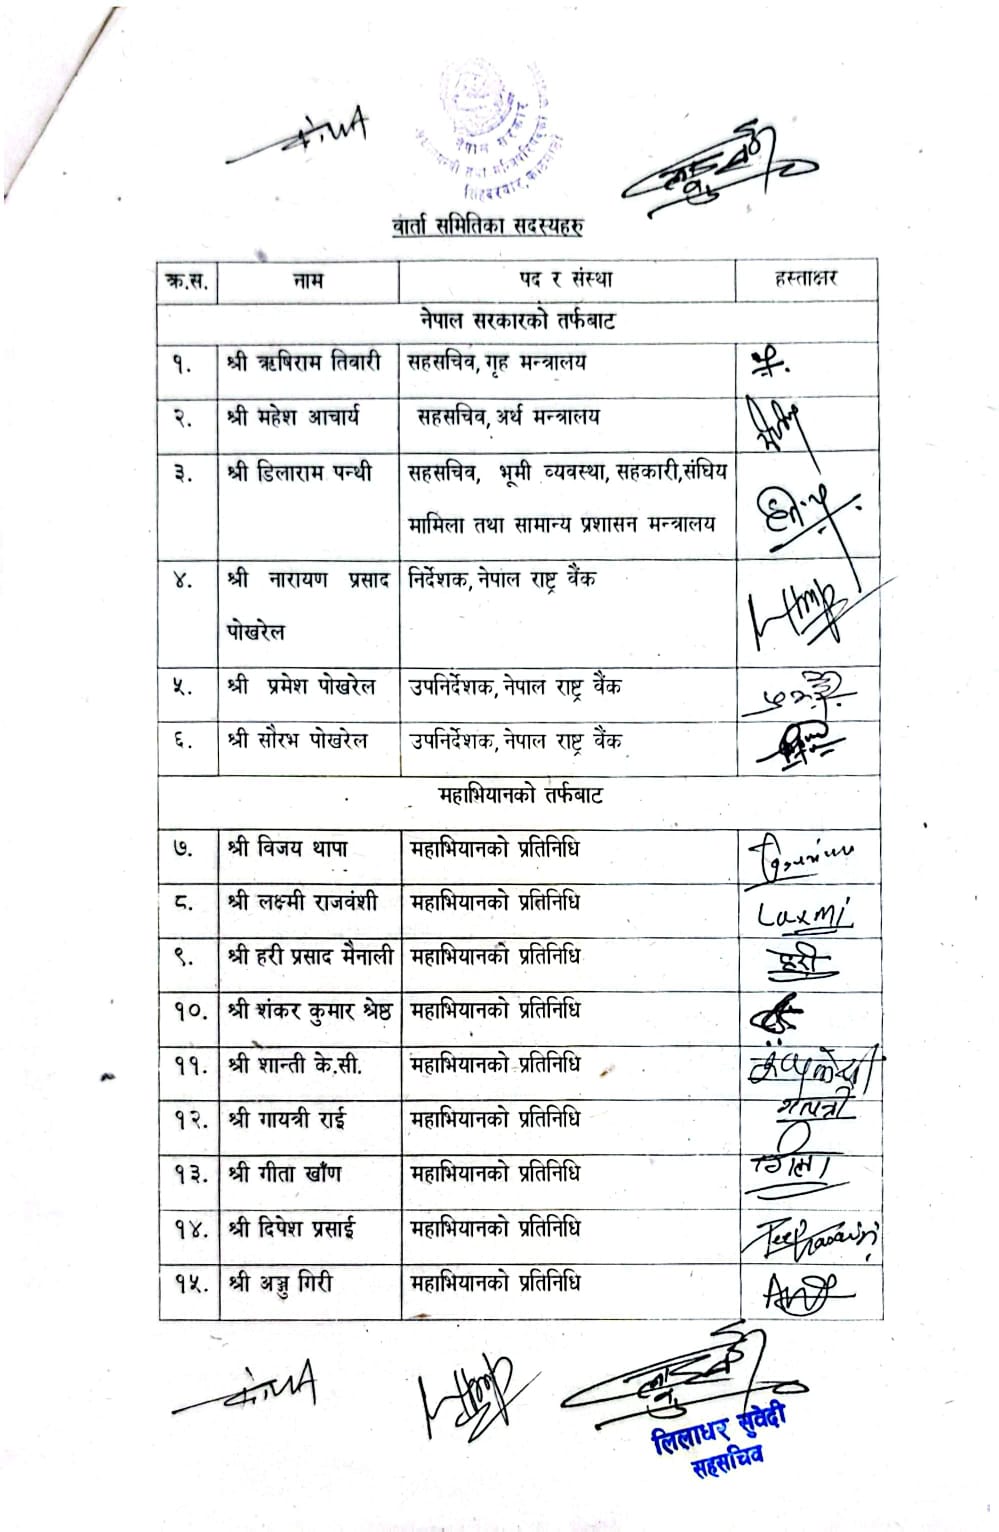 नेपाल सरकार
सिंहदरबार, काठमाडौं
वार्ता समितिका सदस्यहरु
क्र.स. नाम पद र संस्था हस्ताक्षर
नेपाल सरकारको तर्फबाट
१. श्री ऋषिराम तिवारी सहसचिव, गृह मन्त्रालय
२. श्री महेश आचार्य सहसचिव, अर्थ मन्त्रालय
३. श्री डिलाराम पन्थी सहसचिव, भूमी व्यवस्था, सहकारी,संघिय
मामिला तथा सामान्य प्रशासन मन्त्रालय
४. श्री नारायण प्रसाद निर्देशक, नेपाल राष्ट्र बैंक
पोखरेल
५. श्री प्रमेश पोखरेल उपनिर्देशक, नेपाल राष्ट्र बैंक
६. श्री सौरभ पोखरेल उपनिर्देशक, नेपाल राष्ट्र बैंक
महाभियानको तर्फबाट
७. श्री विजय थापा महाभियानको प्रतिनिधि
८. श्री लक्ष्मी राजवंशी महाभियानको प्रतिनिधि Laxmi
९. श्री हरी प्रसाद मैनाली महाभियानको प्रतिनिधि हरी
१०. श्री शंकर कुमार श्रेष्ठ महाभियानको प्रतिनिधि
११. श्री शान्ती के.सी. महाभियानको प्रतिनिधि
१२. श्री गायत्री राई महाभियानको प्रतिनिधि
१३. श्री गीता खाँण महाभियानको प्रतिनिधि
१४. श्री दिपेश प्रसाई महाभियानको प्रतिनिधि
१५. श्री अञ्जु गिरी महाभियानको प्रतिनिधि
लिलाधर सुवेदी
सहसचिव